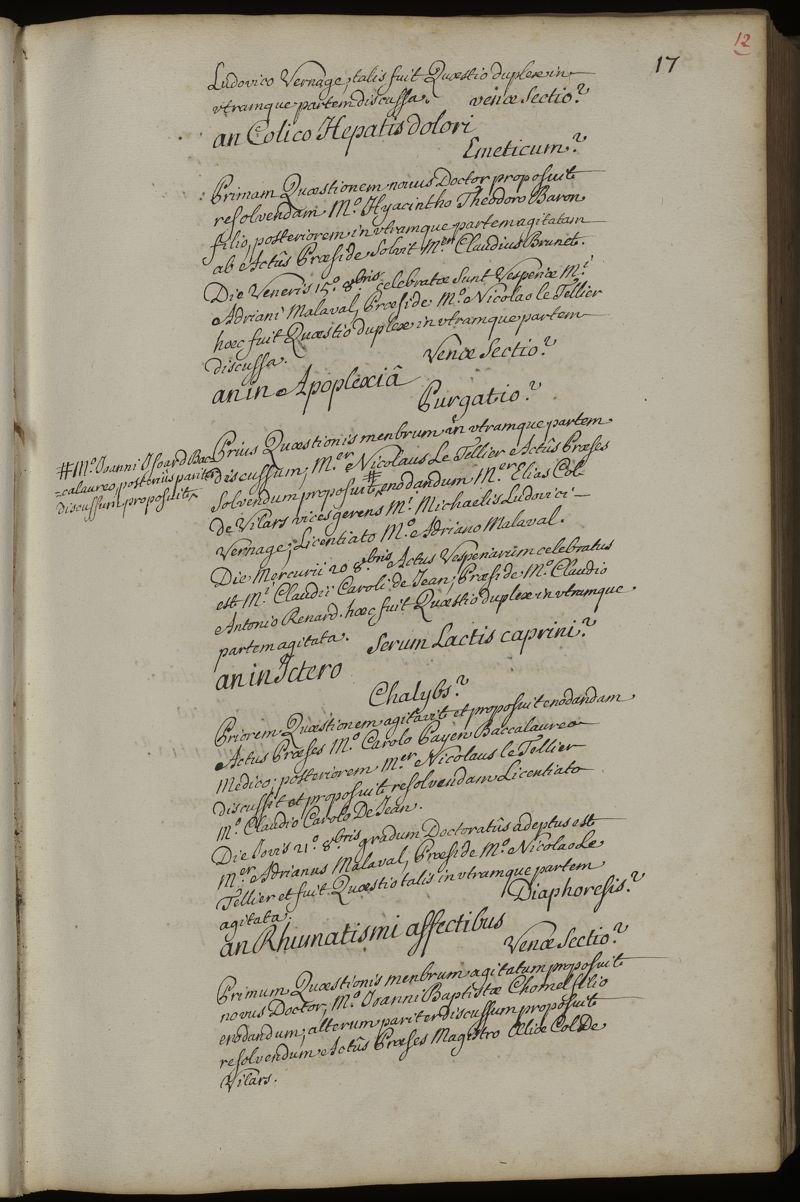 12
17
Ludovico Vernage, talis fuit Quæstio duplex in
vtramque partem discussa.
venæ Sectio?
an Colico Hepatis dolori
Emeticum?
Primam Quæstionem novus Doctor proposuit
resolvendam M.º Hyacintho Theodoro Baron
filio, posteriorem in vtramque partem agitatam
ab Actûs Præside Solvit M.er Claudius Brunet.
Die Veneris 15.º 8.bris celebratæ sunt Vesperiæ M.i
Adriani Malaval, Præside M.º Nicolao le Tellier
hæc fuit Quæstio duplex in vtramque partem
discussa.
Venæ Sectio?
an in Apoplexiâ
Purgatio?
Prius Quæstionis menbrum in vtramque partem
discussum, M.er Nicolaus Le Tellier Actûs Præses
Solvendum proposuit # enodandum M.er Elias Col
de Vilars vices gerens M.i Michaelis Ludovici
Vernage; Licentiato M.º Adriano Malaval.
# M.º Joanni Isoard Bac
-calaureo, posterius pariter
Discussum proposuit
Die Mercurii 20 8.bris Actus Vesperiarum celebratus
est M.i Claudii Caroli de Jean; Præside M.º Claudio
Antonio Renard. hæc fuit Quæstio duplex in vtramque
partem agitata.
Serum Lactis caprini?
an in Ictero
Chalybs?
Priorem Quæstionem agitavit et proposuit enodandam
Actus Præses M.º Carolo Payen Baccalaureo
Medico; posteriorem M.er Nicolaus le Tellier
discussit et proposuit resolvendam Licentiato
M.º Claudio Carolo De Jean.
Die Jovis 21.º 8.bris gradum Doctoratûs adeptus est
M.er Adrianus Malaval, Præside M.º Nicolao Le
Tellier et fuit Quæstio talis in vtramque partem
agitata.
Diaphoresis?
an Rhiumatismi affectibus
Venæ Sectio?
Primum Quæstionis menbrum agitatum proposuit
novus Doctor, M.º Joanni Baptistæ Chomel filio
enodandum; alterum pariter discussum proposuit
resolvendum Actûs Præses Magistro Æliæ Col De
Vilars.